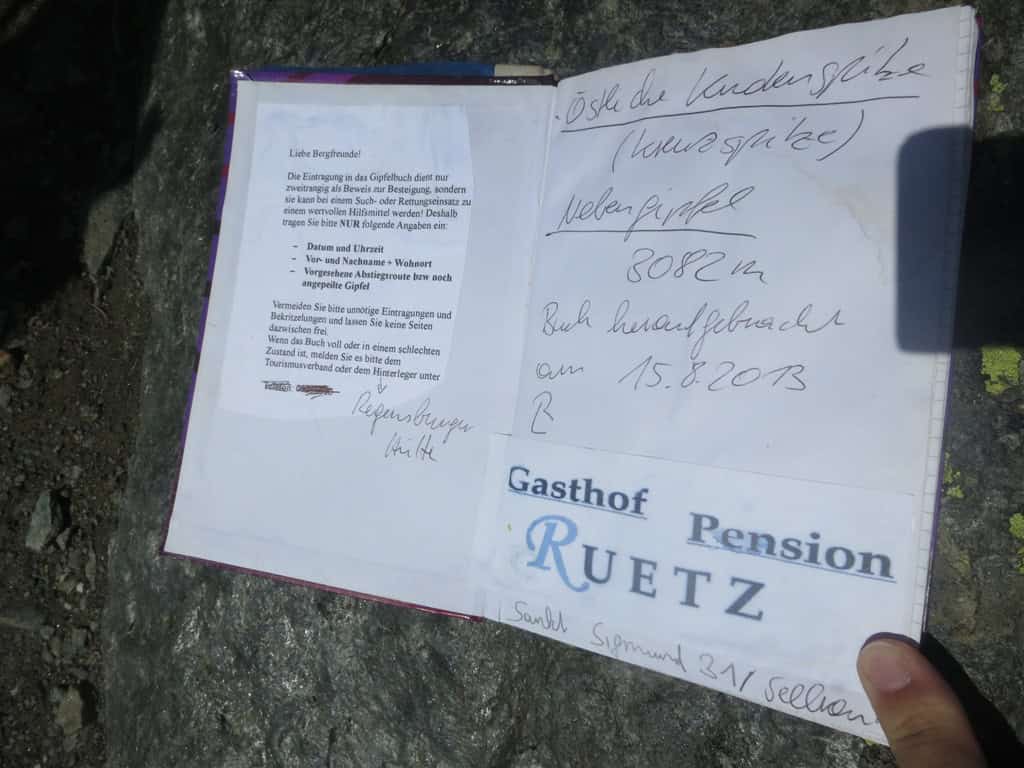 Liebe Bergfreunde!
Die Eintragung in das Gipfelbuch dient nur
zweitrangig als Beweis zur Besteigung, sondern
sie kann bei einem Such- oder Rettungseinsatz zu
einem wertvollen Hilfsmittel werden! Deshalb
tragen Sie bitte NUR folgende Angaben ein:
– Datum und Uhrzeit
– Vor- und Nachname + Wohnort
– Vorgesehene Abstiegsroute bzw noch
angepeilte Gipfel
Vermeiden Sie bitte unnötige Eintragungen und
Bekritzelungen und lassen Sie keine Seiten
dazwischen frei.
Wenn das Buch voll oder in einem schlechten
Zustand ist, melden Sie es bitte dem
Tourismusverband oder dem Hinterleger unter
Regensburger
Hütte
Östliche
(Kreuzspitze)
Nebengipfel
3082m
Buch heraufgebracht
am 15.8.2013
Gasthof Pension
RUETZ
Sankt Sigmund 31/ Sellrain